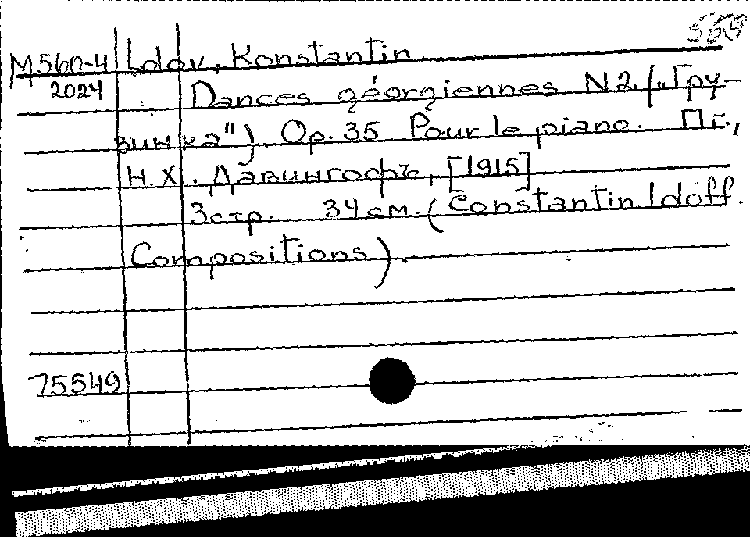 569
М560-4 Ldov, Konstantin
2024 Dances géorgiennes N2. („Гру-
зинка") Op. 35 Pour le piano. Пг.,
Н.Х. Давингофъ, [1915]
3 стр. 34 см. (Constantin Idoff.
Compositions).
75549